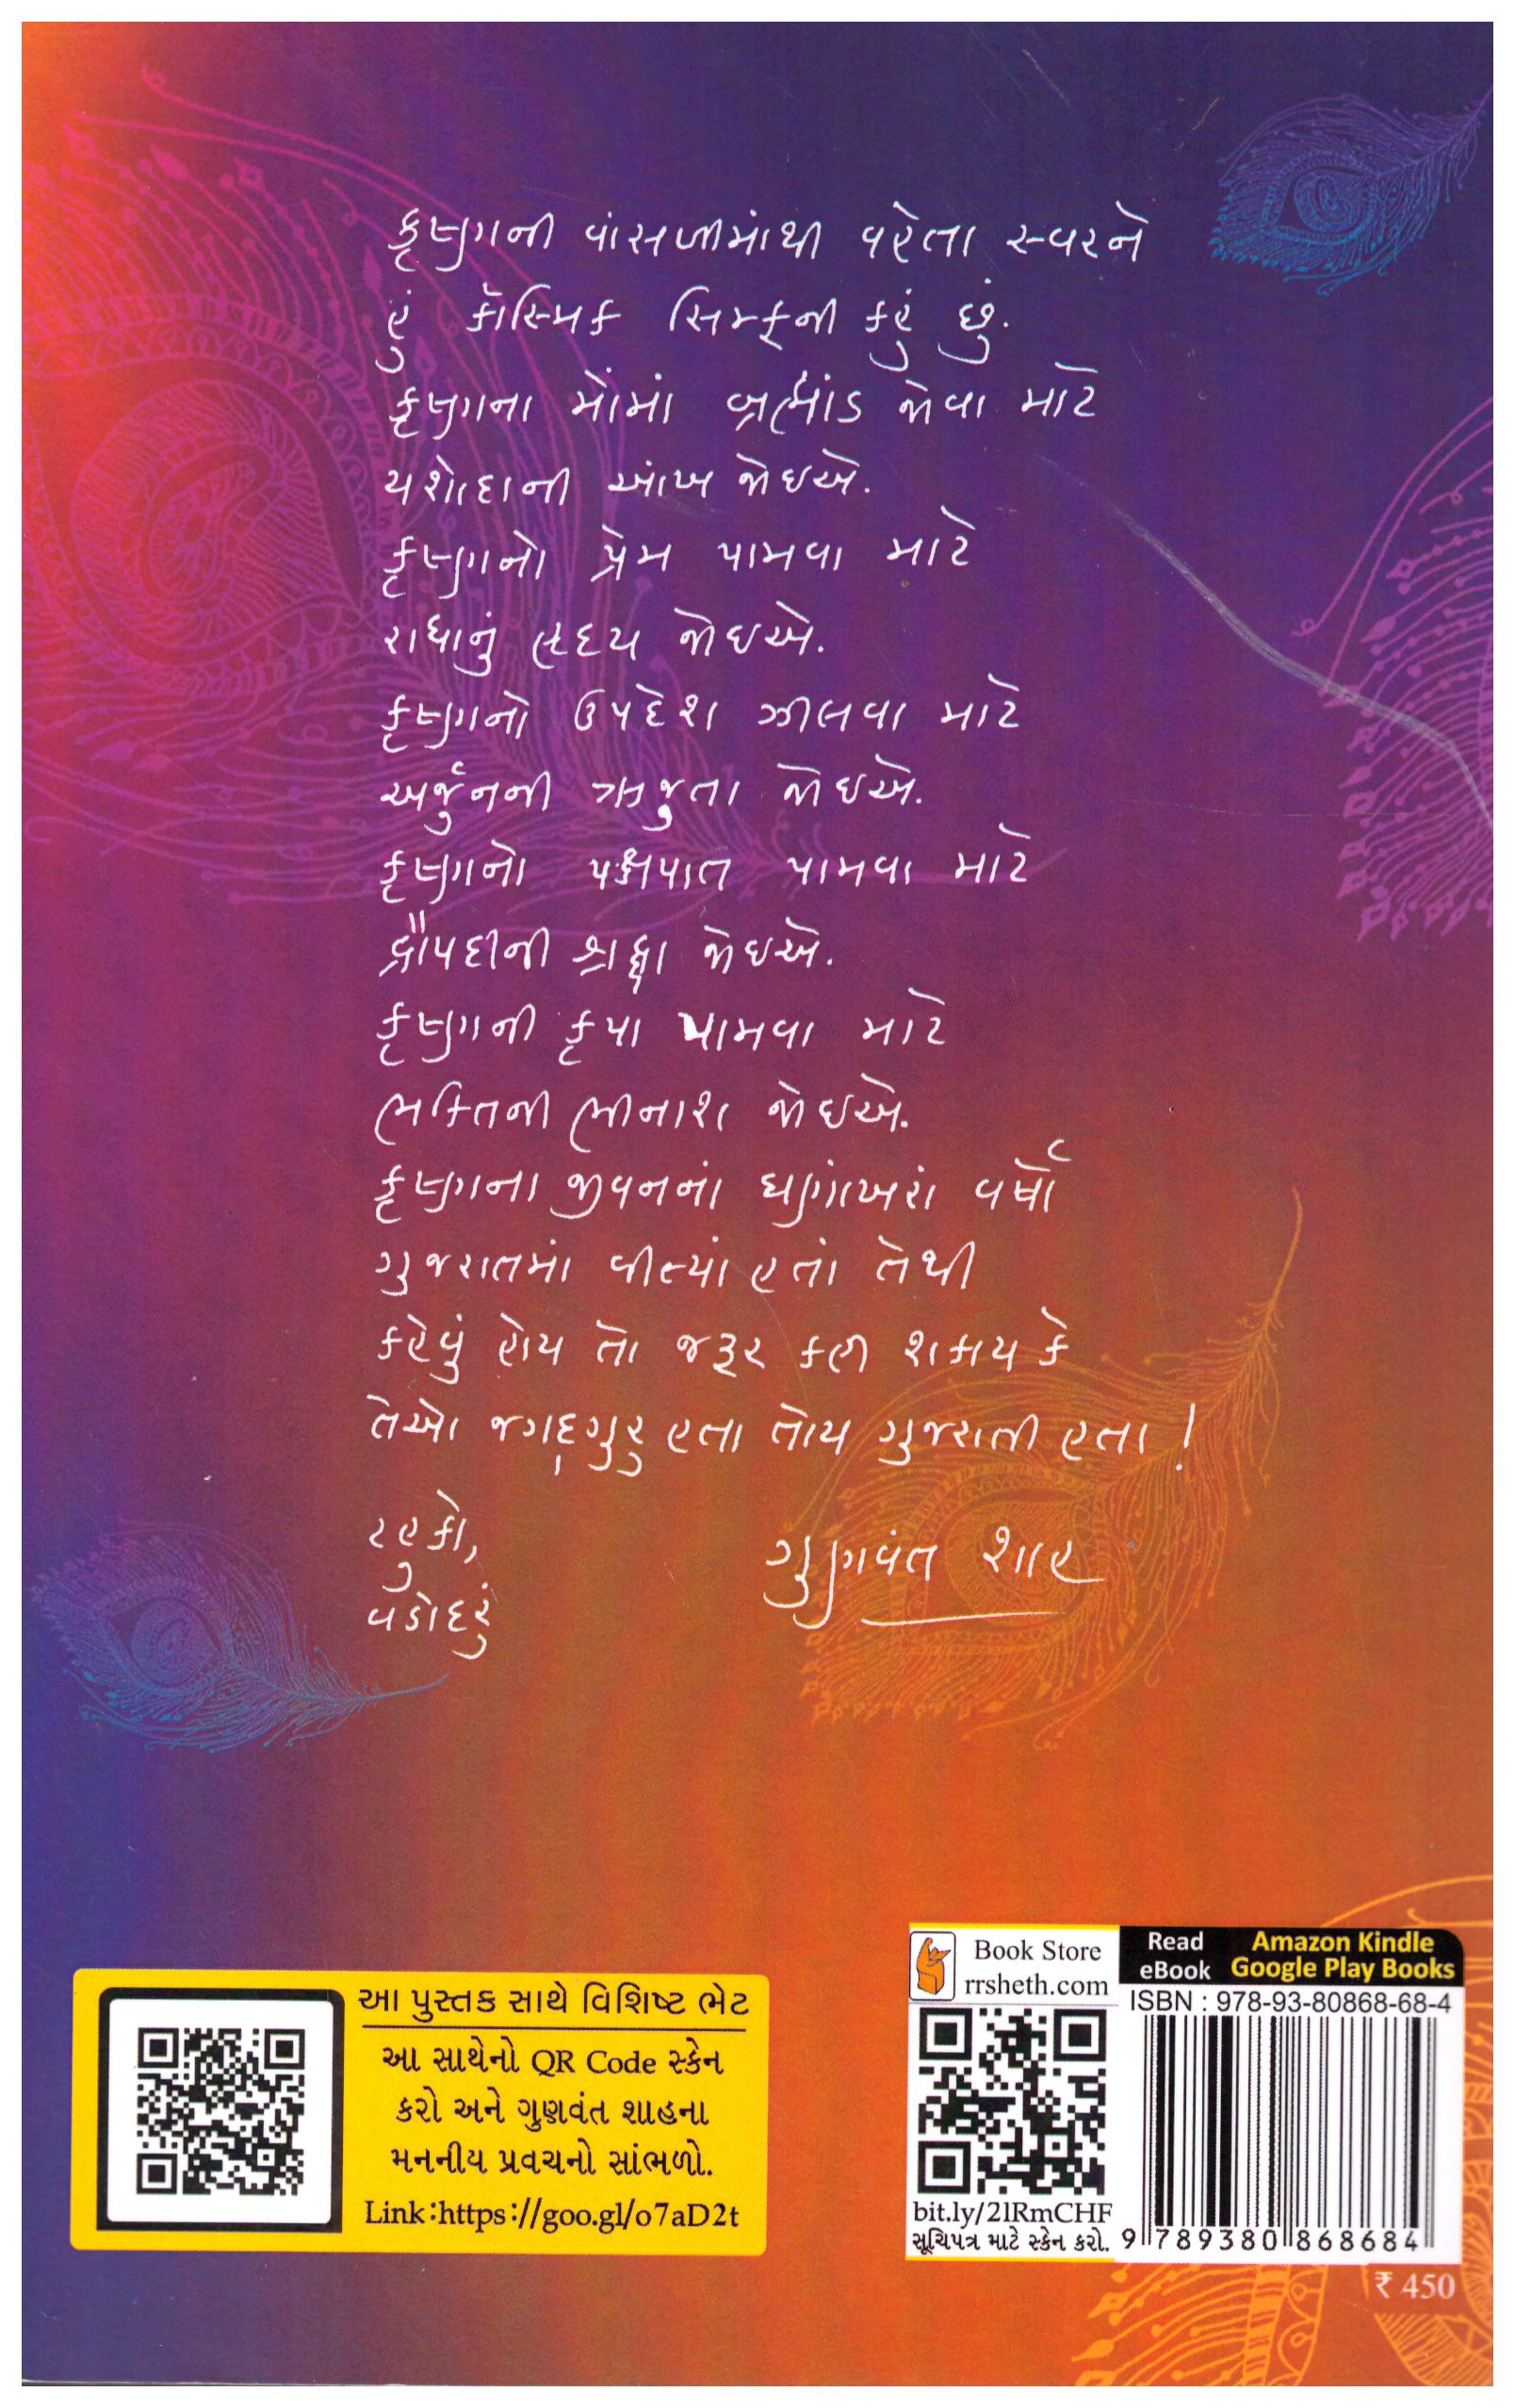 કૃષ્ણની વાંસળીમાંથી વહેતા સ્વરને
હું કૉસ્મિક સિમ્ફની કહું છું.
કૃષ્ણના મોંમાં બ્રહ્માંડ જોવા માટે
યશોદાની આંખ જોઇએ.
કૃષ્ણનો પ્રેમ પામવા માટે
રાધાનું હૃદય જોઇએ.
કૃષ્ણનો ઉપદેશ ઝીલવા માટે
અર્જુનની ઋજુતા જોઇએ.
કૃષ્ણનો પક્ષપાત પામવા માટે
દ્રૌપદીની શ્રદ્ધા જોઇએ.
કૃષ્ણની કૃપા પામવા માટે
ભક્તિની ભીનાશ જોઇએ.
કૃષ્ણના જીવનનાં ઘણાંખરાં વર્ષો
ગુજરાતમાં વીત્યાં હતાં તેથી
કહેવું હોય તો જરૂર કહી શકાય કે
તેઓ જગદ્ગુરુ હતા તોય ગુજરાતી હતા !
ટહુકો,
ગુણવંત શાહ
વડોદરું
આ પુસ્તક સાથે વિશિષ્ટ ભેટ
આ સાથેનો QR Code સ્કેન
કરો અને ગુણવંત શાહના
મનનીય પ્રવચનો સાંભળો.
Link:https://goo.gl/o7aD2t
Book Store
rrsheth.com
Read eBook
Amazon Kindle
Google Play Books
ISBN : 978-93-80868-68-4
bit.ly/2lRmCHF
સૂચિપત્ર માટે સ્કેન કરો.
9 789380 868684
₹ 450